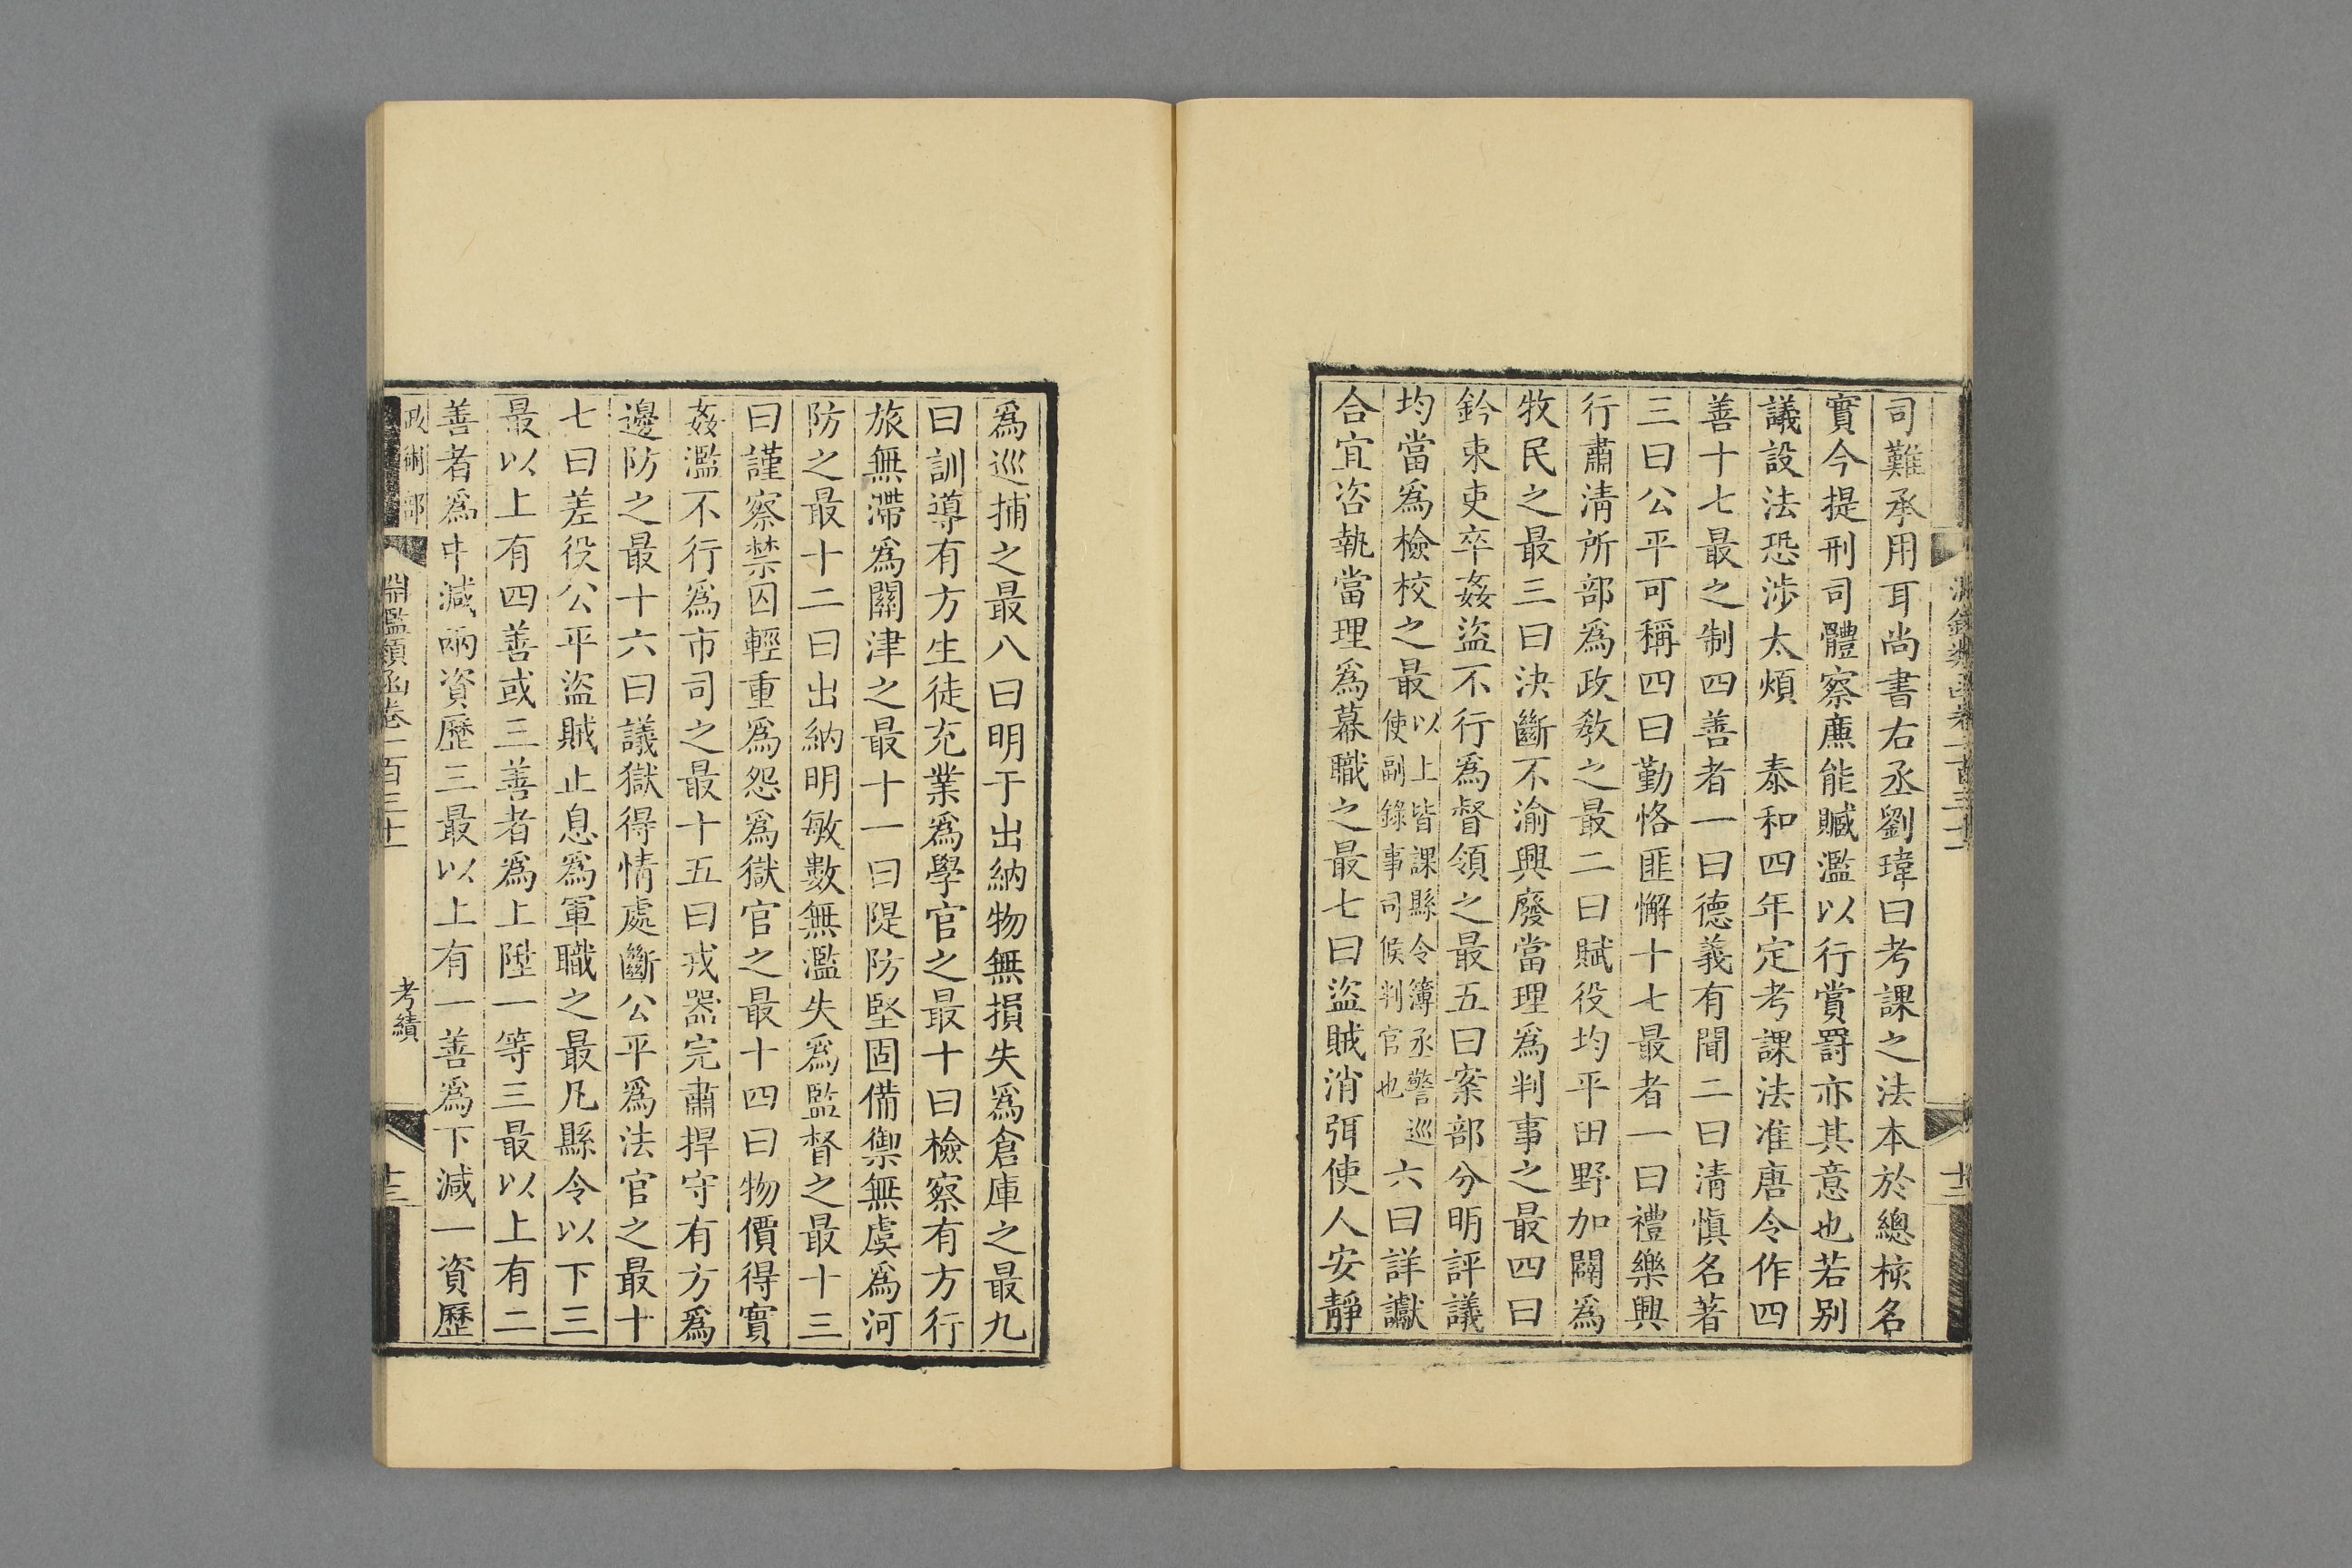 司難承用耳尚書右丞劉瑋曰考課之法本於總核名
實今提刑司體察廉能贓濫以行賞罰亦其意也若别
議設法恐涉太煩　泰和四年定考課法准唐令作四
善十七最之制四善者一曰德義有聞二曰清慎名著
三曰公平可稱四曰勤恪匪懈十七最者一曰禮樂興
行肅清所部為政教之最二曰賦役均平田野加闢爲
牧民之最三曰決斷不渝興廢當理爲判事之最四曰
鈐束吏卒姦盜不行爲督領之最五曰案部分明評議
均當爲檢校之最以上皆課縣令簿丞警巡使副錄事司候判官也六曰詳讞
合宜咨執當理爲幕職之最七曰盜賊消弭使人安靜
爲巡捕之最八曰明于出納物無損失爲倉庫之最九
曰訓導有方生徒充業爲學官之最十曰檢察有方行
旅無滯爲關津之最十一曰隄防堅固備禦無虞爲河
防之最十二曰出納明敏數無濫失爲監督之最十三
曰謹察禁囚輕重爲怨爲獄官之最十四曰物價得實
姦濫不行爲市司之最十五曰戎器完肅捍守有方爲
邊防之最十六曰議獄得情處斷公平爲法官之最十
七曰差役公平盜賊止息爲軍職之最凡縣令以下三
最以上有四善或三善者爲上陞一等三最以上有二
善者爲中減兩資歷三最以上有一善爲下減一資歷
政術部
淵鑑類函卷一百三十
考績
十三